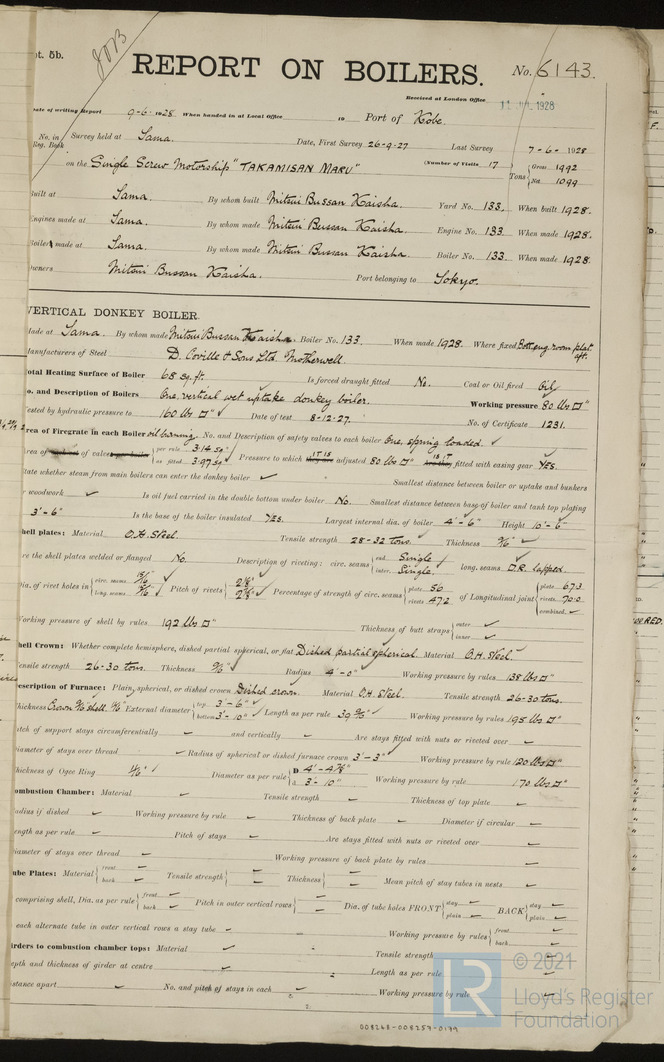 pt. 5b.
JOB
REPORT ON BOILERS.
No. 6143.
Received at London Office
11 JUL 1928
Date of writing Report 9-6-1928 When handed in at Local Office 19 Port of Kobe.
No. in Survey held at Tama. Date, First Survey 26-9-27 Last Survey 7-6-1928
Reg. Book
on the Single Screw Motorship "TAKAMISAN MARU" (Number of Visits 17 Tons Gross 1992 Net 1099
Built at Tama. By whom built Mitsui Bussan Kaisha. Yard No. 133. When built 1928.
Engines made at Tama. By whom made Mitsui Bussan Kaisha. Engine No. 133 When made 1928.
Boiler made at Tama. By whom made Mitsui Bussan Kaisha. Boiler No. 133. When made 1928
Owners Mitsui Bussan Kaisha. Port belonging to Tokyo.
VERTICAL DONKEY BOILER.
Made at Tama. By whom made Mitsui Bussan Kaisha. Boiler No. 133. When made 1928. Where fixed Bott. eng. room plat. aft.
Manufacturers of Steel D. Coville & Sons Ltd. Motherwell.
Total Heating Surface of Boiler 68 sq. ft. Is forced draught fitted No. Coal or Oil fired Oil
No. and Description of Boilers One, vertical wet uptake donkey boiler. Working pressure 80 lbs □"
Tested by hydraulic pressure to 160 lbs □" Date of test 8-12-27. No. of Certificate 1231.
Area of Firegrate in each Boiler oil burning. No. and Description of safety valves to each boiler One, spring loaded.
Area of valve per rule 3.14 sq" as fitted 3.97 sq" Pressure to which IT IS adjusted 80 lbs □" IS IT fitted with easing gear YES.
State whether steam from main boilers can enter the donkey boiler Smallest distance between boiler or uptake and bunkers
or woodwork Is oil fuel carried in the double bottom under boiler No. Smallest distance between base of boiler and tank top plating
3'-6" Is the base of the boiler insulated YES. Largest internal dia. of boiler 4'-6" Height 10'-6"
Shell plates: Material O.H. Steel. Tensile strength 28-32 tons. Thickness 9/16"
Are the shell plates welded or flanged No. Description of riveting: circ. seams end Single inter. Single long. seams D.R. lapped.
Dia. of rivet holes in circ. seams 15/16" long. seams Pitch of rivets Percentage of strength of circ. seams plate 56 rivets 47.2 of Longitudinal joint plate 67.3 rivets 70.0 combined.
Working pressure of shell by rules 192 lbs □" Thickness of butt straps outer inner
Shell Crown: Whether complete hemisphere, dished partial spherical, or flat Dished partial spherical. Material O.H. Steel.
Tensile strength 26-30 tons. Thickness 9/16" Radius 4'-0" Working pressure by rules 138 lbs □"
Description of Furnace: Plain, spherical, or dished crown Dished crown. Material O.H. Steel. Tensile strength 26-30 tons.
Thickness Crown 9/16" shell. External diameter top 3'-6" bottom 3'-10" Length as per rule Working pressure by rules 195 lbs □"
Pitch of support stays circumferentially and vertically Are stays fitted with nuts or riveted over
Diameter of stays over thread Radius of spherical or dished furnace crown 3'-3" Working pressure by rule 120 lbs □"
Thickness of Ogee Ring Diameter as per rule D 4'-4 7/8" d 3'-10" Working pressure by rule 170 lbs □"
Combustion Chamber: Material Tensile strength Thickness of top plate
Radius if dished Working pressure by rule Thickness of back plate Diameter if circular
Length as per rule Pitch of stays Are stays fitted with nuts or riveted over
Diameter of stays over thread Working pressure of back plate by rules
Tube Plates: Material front back Tensile strength Thickness Mean pitch of stay tubes in nests
comprising shell, Dia. as per rule front back Pitch in outer vertical rows Dia. of tube holes FRONT stay plain BACK stay plain
each alternate tube in outer vertical rows a stay tube Working pressure by rules front back
Girders to combustion chamber tops: Material Tensile strength
Depth and thickness of girder at centre Length as per rule
Distance apart No. and pitch of stays in each Working pressure by rule
LR © 2021 Lloyd's Register Foundation
008268-008257-0179